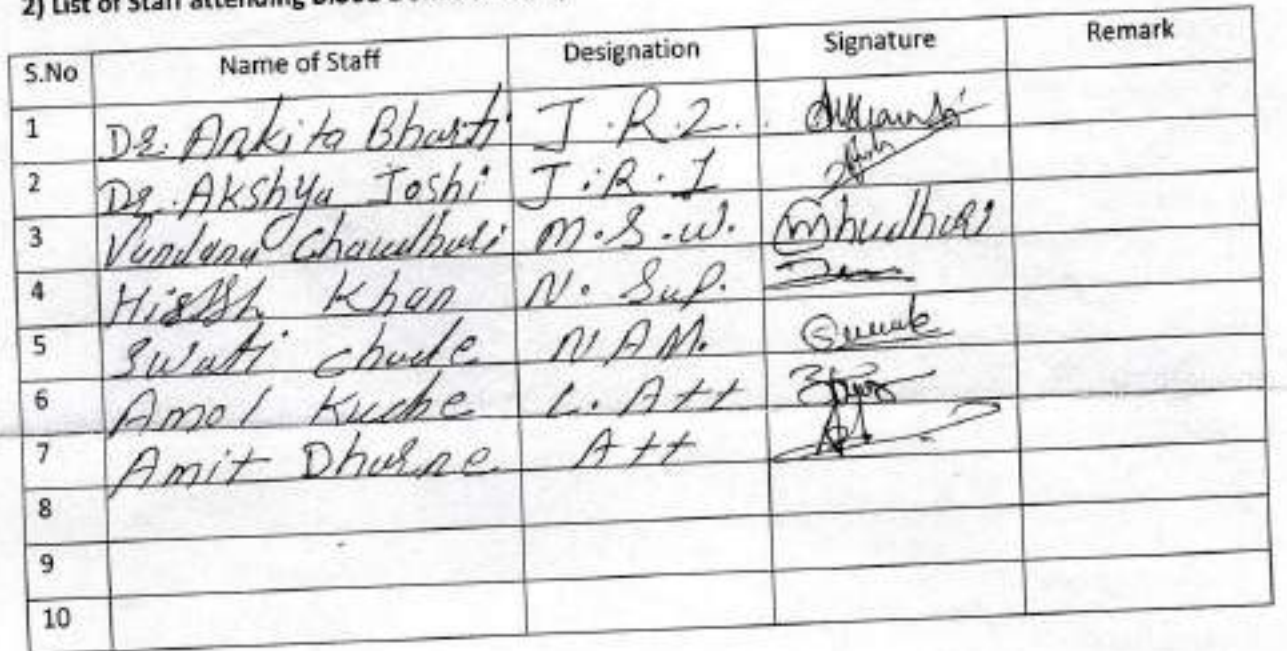 2) List of Staff attending Blood
S.No Name of Staff Designation Signature Remark
1 Dr. Ankita Bharti J.R.2.
2 Dr. Akshya Joshi J.R.I
3 Vandana Chaudhari M.S.W.
4 Khan N. Sup.
5 Swati chude N A M.
6 Amol Kuche L. Att
7 Amit Dhurne Att
8
9
10